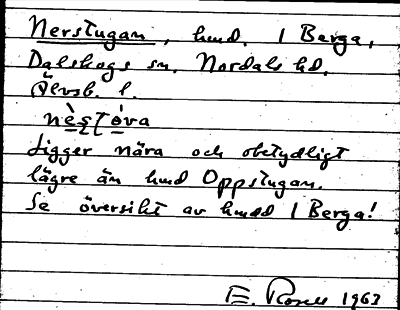 Nerstugan, hmd. 1 Berga,
Dalskogs sn. Nordals hd.
Älvsb. l.
nèstóva
Ligger nära och obetydligt
lägre än hmd Oppstugan.
Se översikt av hmdd 1 Berga!
E. Rosell 1963